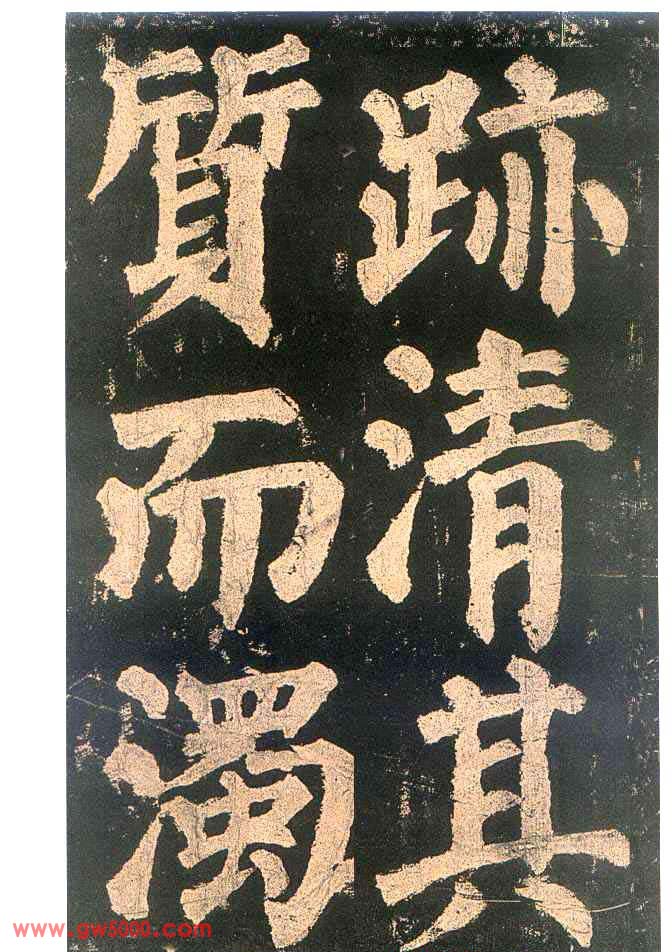 跡清其
質而濁
www.gw5000.com